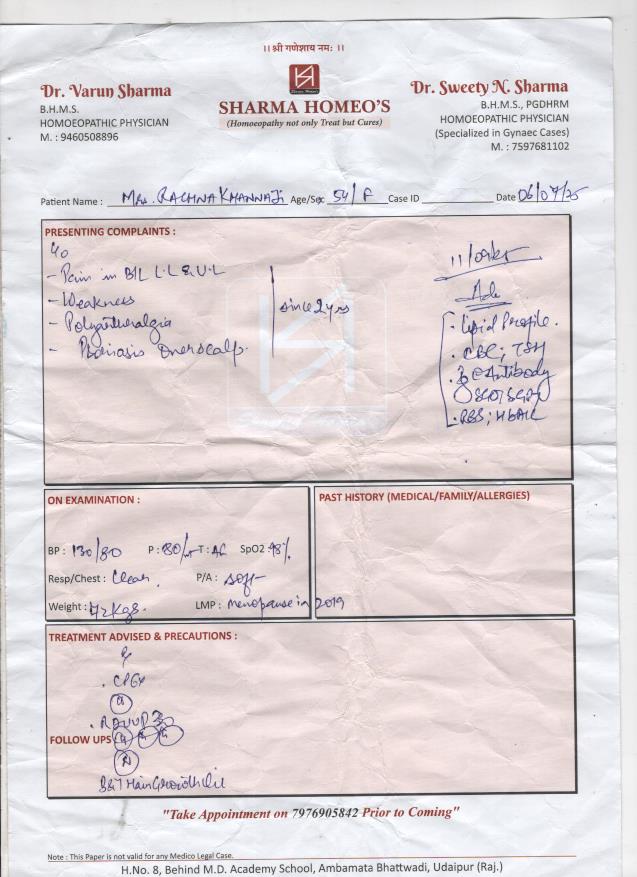 ।। श्री गणेशाय नमः ।।
Dr. Varun Sharma
B.H.M.S.
HOMOEOPATHIC PHYSICIAN
M. : 9460508896
SHARMA HOMEO'S
(Homoeopathy not only Treat but Cures)
Dr. Sweety N. Sharma
B.H.M.S., PGDHRM
HOMOEOPATHIC PHYSICIAN
(Specialized in Gynaec Cases)
M. : 7597681102
Patient Name : Mrs. RACHNA KHANNA Ji Age/Sex 54/F Case ID Date 06/07/25
PRESENTING COMPLAINTS :
- Pain in B/L L.L & U.L
- Weakness
- Polyarthralgia
- Psoriasis over scalp.
since 2 yrs
Adv
. Lipid Profile.
. CBC; TSH
Antibody
SGOT SGPT
. RBS; HbA1C
ON EXAMINATION :
BP : 130/80 P : 80/m T : Af SpO2 98%
Resp/Chest : Clear. P/A : soft
Weight : 72Kgs. LMP : menopause in 2019
PAST HISTORY (MEDICAL/FAMILY/ALLERGIES)
TREATMENT ADVISED & PRECAUTIONS :
FOLLOW UPS
B&T Hair Growth Oil
"Take Appointment on 7976905842 Prior to Coming"
Note : This Paper is not valid for any Medico Legal Case.
H.No. 8, Behind M.D. Academy School, Ambamata Bhattwadi, Udaipur (Raj.)